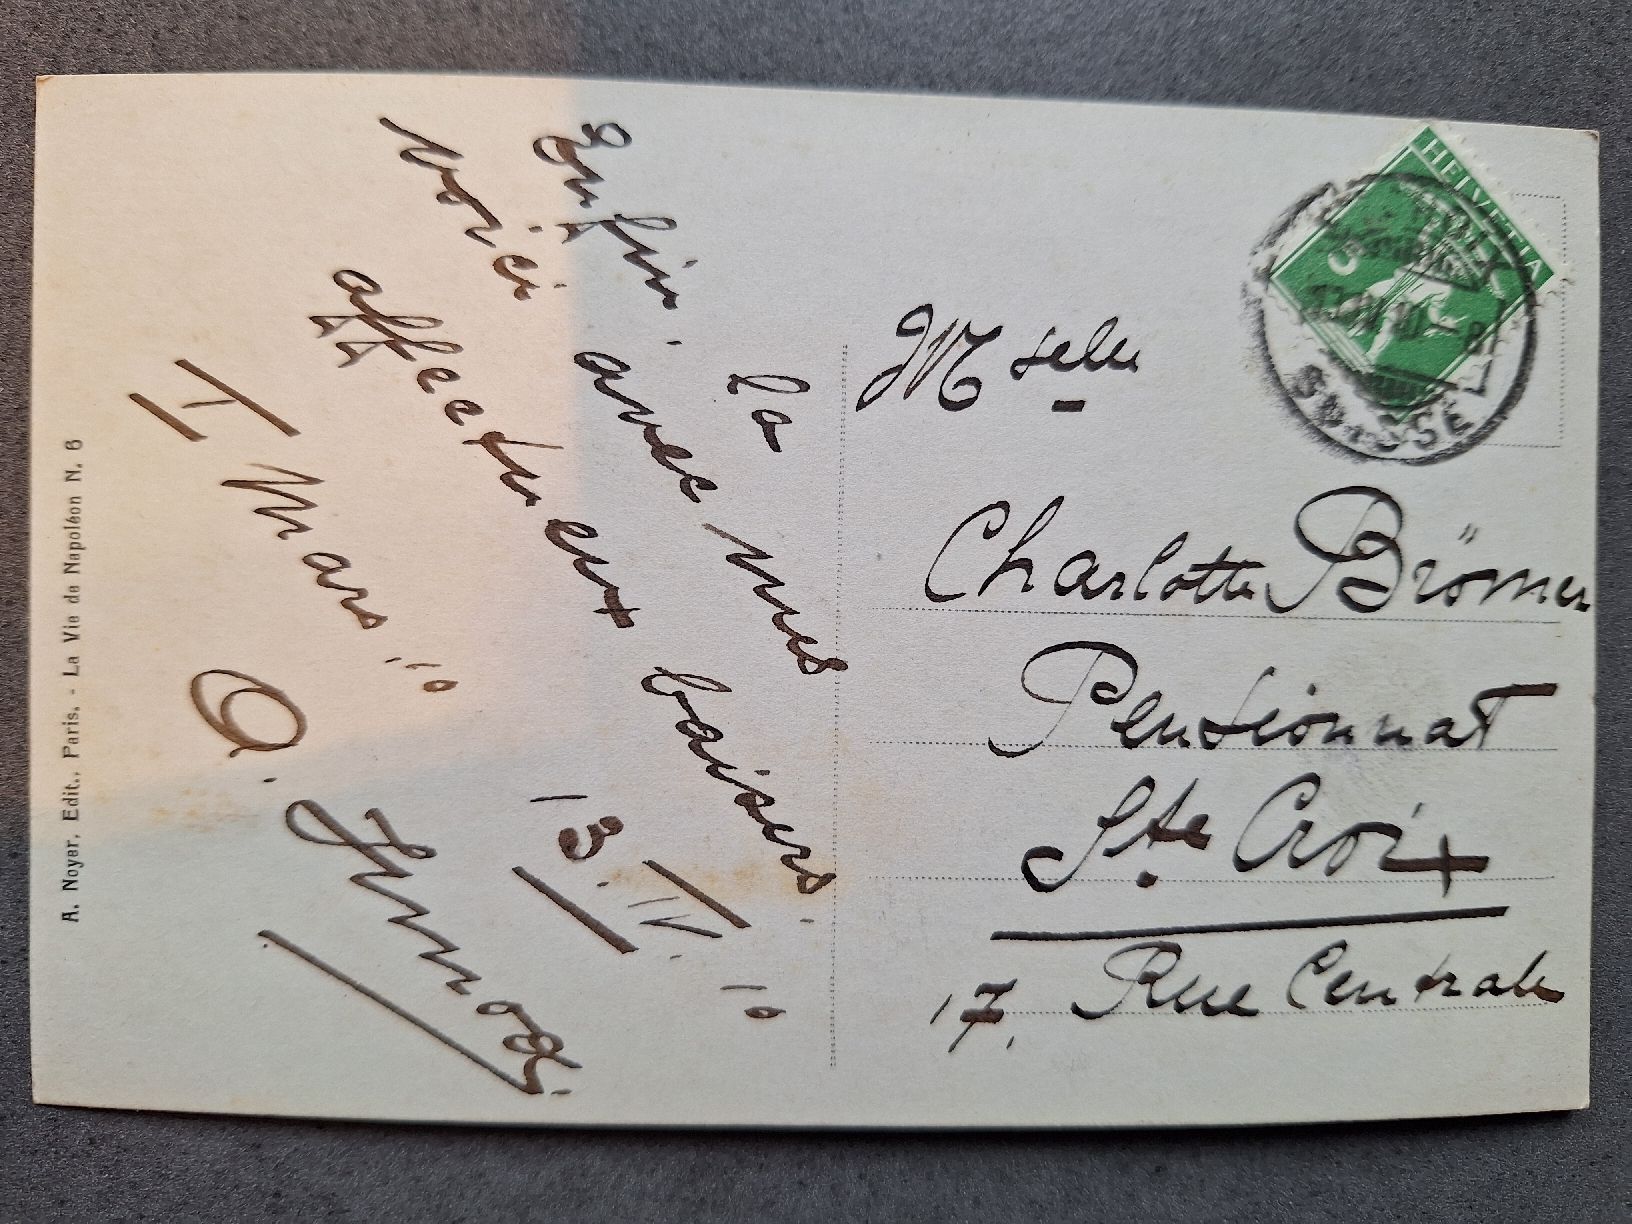 A. Noyer, Edit., Paris. - La Vie de Napoléon N. 6
Enfin, la
voici avec mes
affectueux baisers.
I Mars" 10
13. IV. 10
HELVETIA
SUISSE
Mselle
Charlotte Brömer
Pensionnat
Ste Croix
17, Rue Centrale